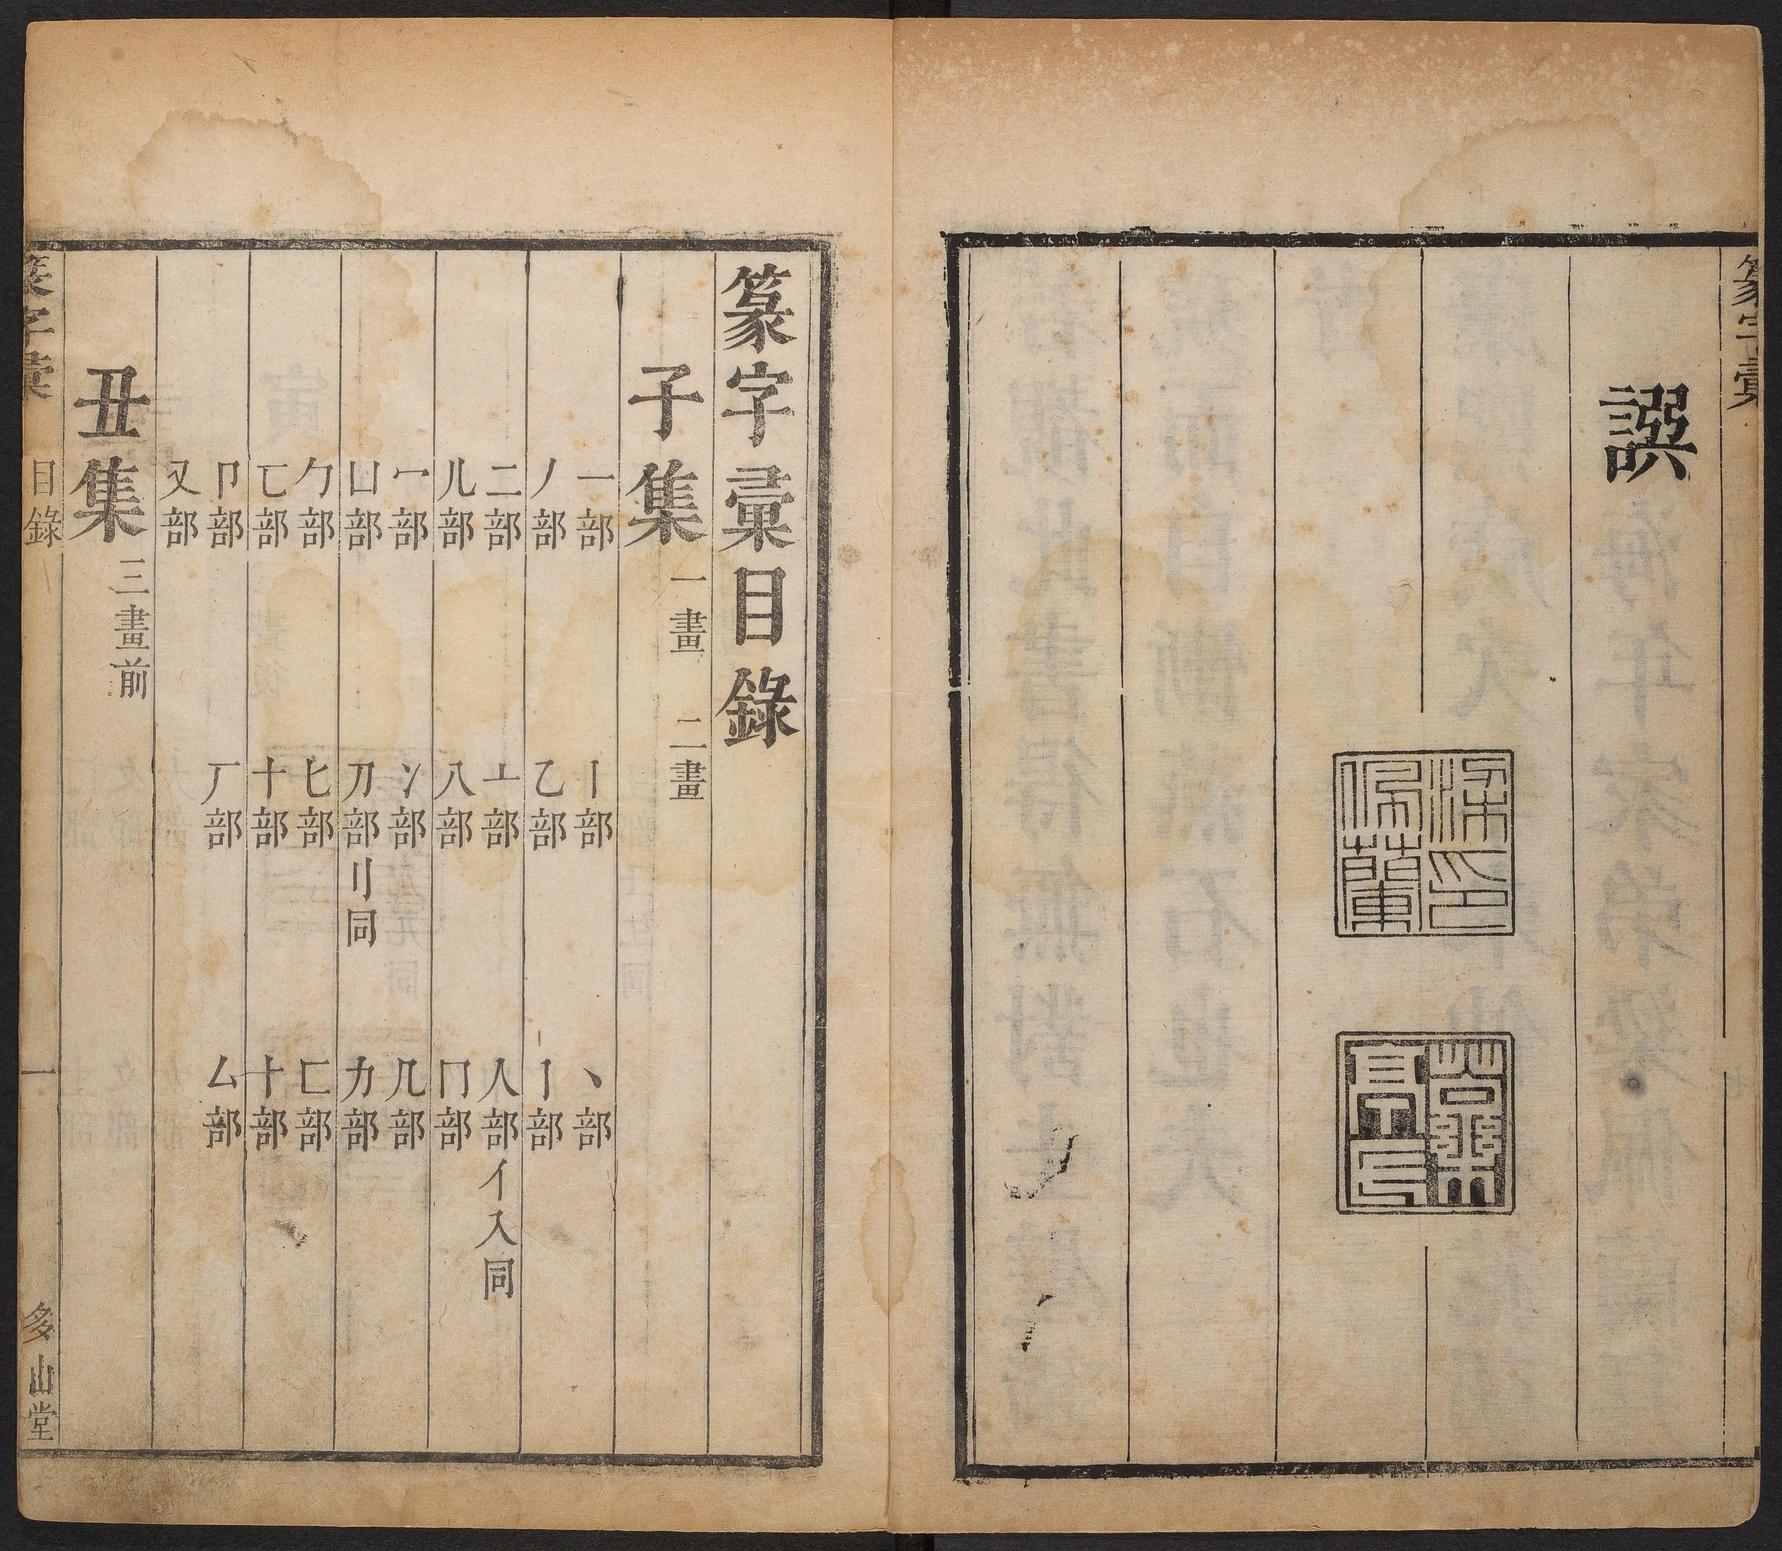 篆字彙
譔
梁印佩蘭
篆字彙目錄
子集 一畫 二畫
一部 丨部 丶部
丿部 乙部 亅部
二部 亠部 人部亻入同
儿部 八部 冂部
冖部 冫部 几部
凵部 刀部刂同 力部
勹部 匕部 匚部
匸部 十部 卜部
卩部 厂部 厶部
又部
丑集 三畫前
篆字彙 目錄 一 多山堂